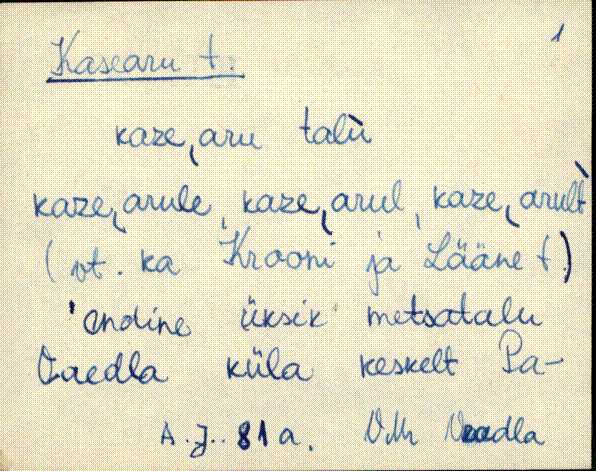 1
Kasearu t.
kaze˛aru talù
kaze˛arule, kaze˛arul, kaze˛arult̀
(vt. ka Krooni ja Lääne t.)
'endine üksik metsatalu
Vaedla küla keskelt Pa-
A.J. 81a. VMr